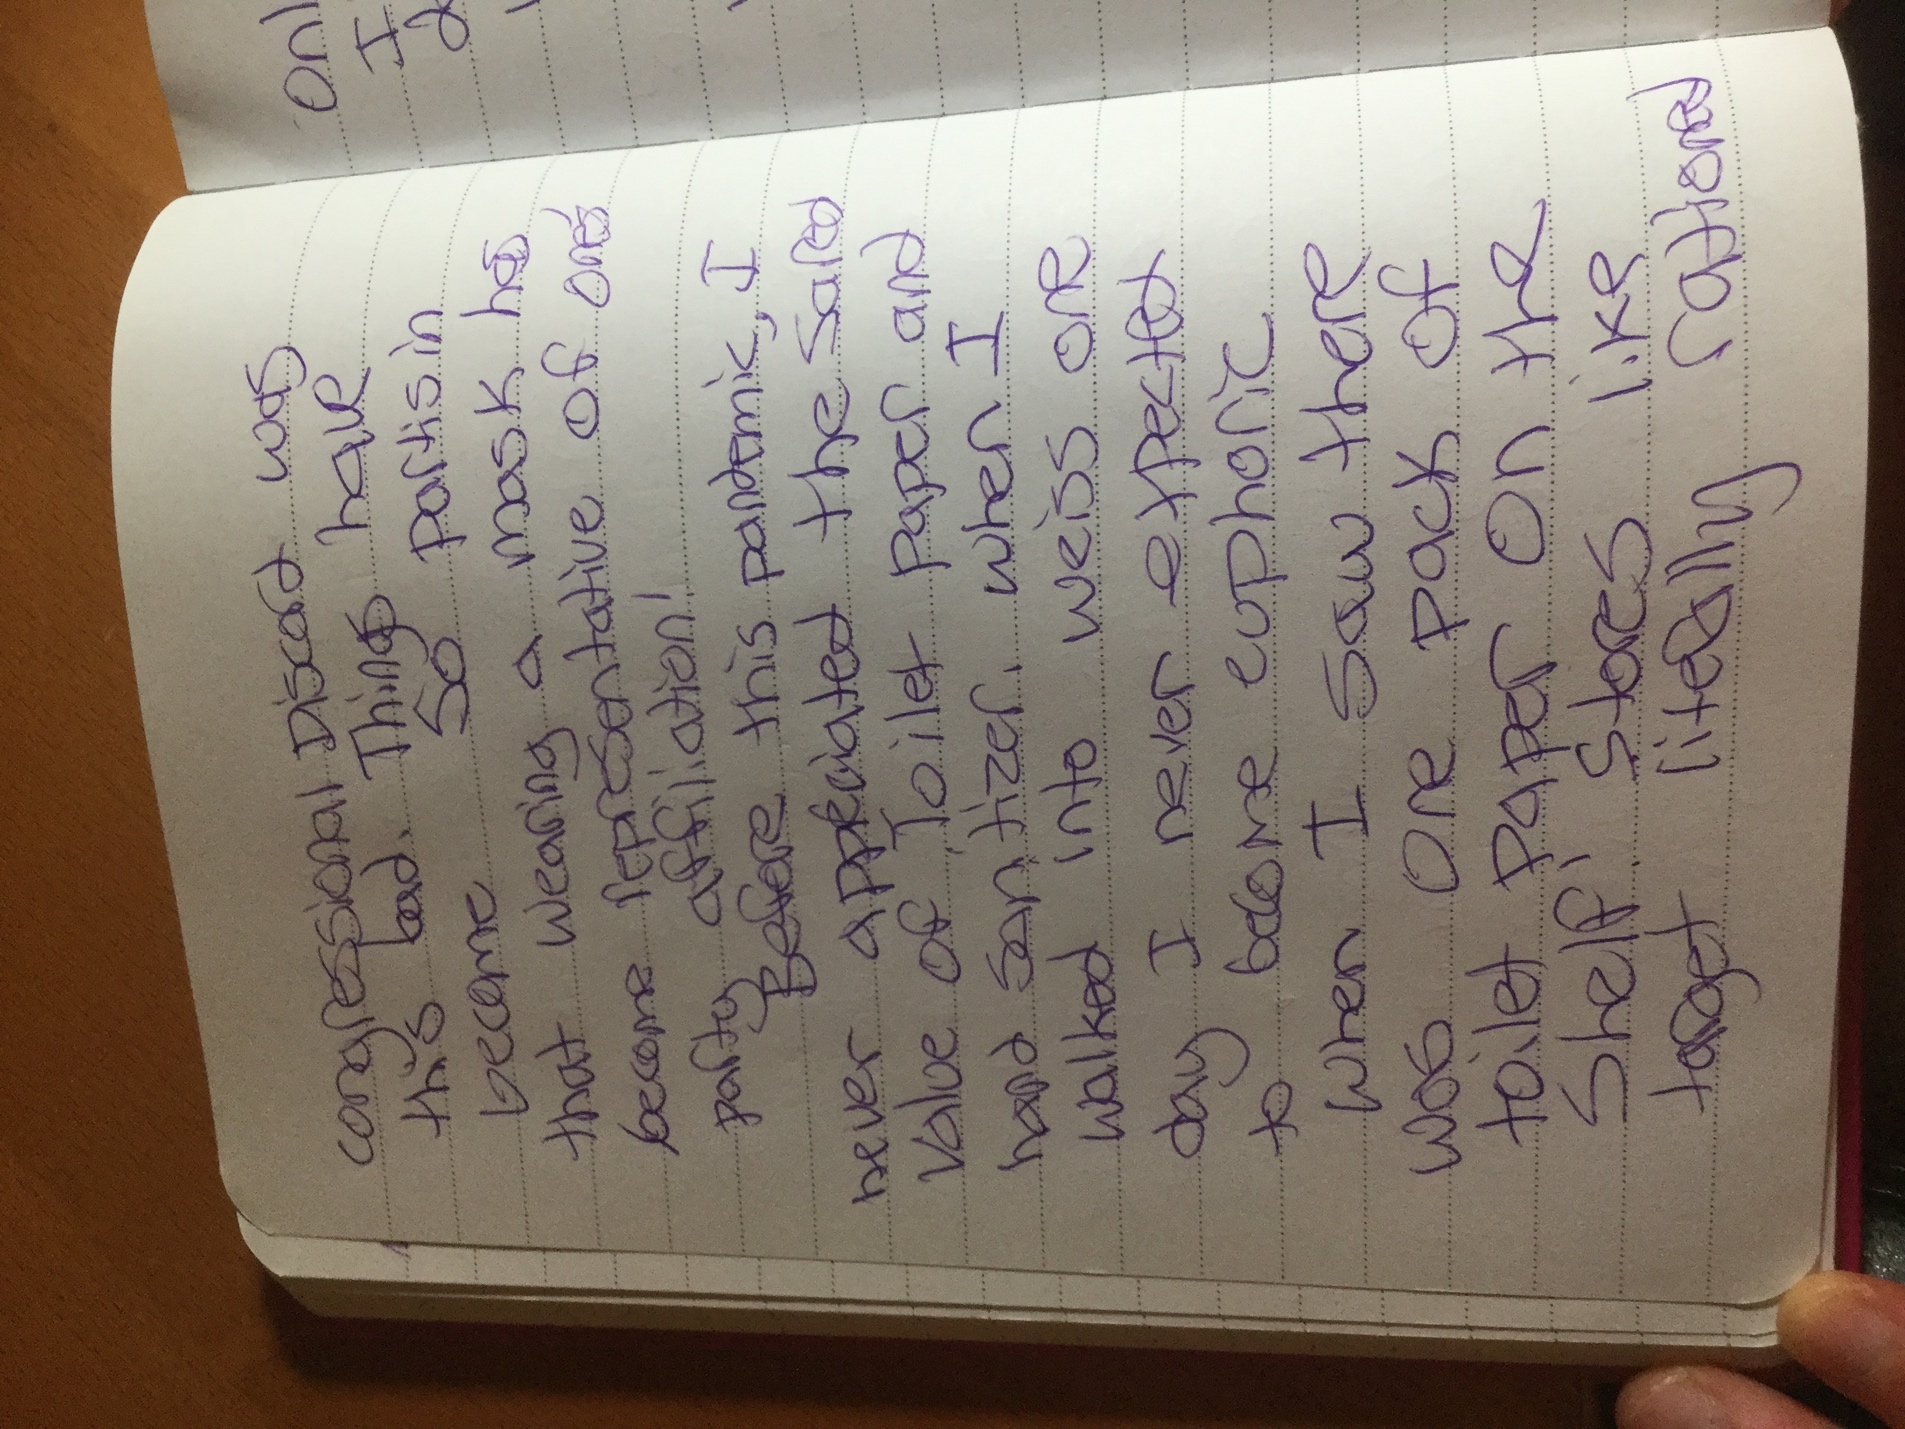 congressional Discord was
this bad. Things have
become so partisin
that wearing a mask has
become representative of one's
party affiliation!
Before this pandemic, I
never appreciated the sared
value of Toilet paper and
hand sanitizer. when I
walked into weiss one
day I never expected
to become euphoric
when I saw there
was one pack of
toilet paper on the
shelf! Stores like
target literally rationed
onl
I